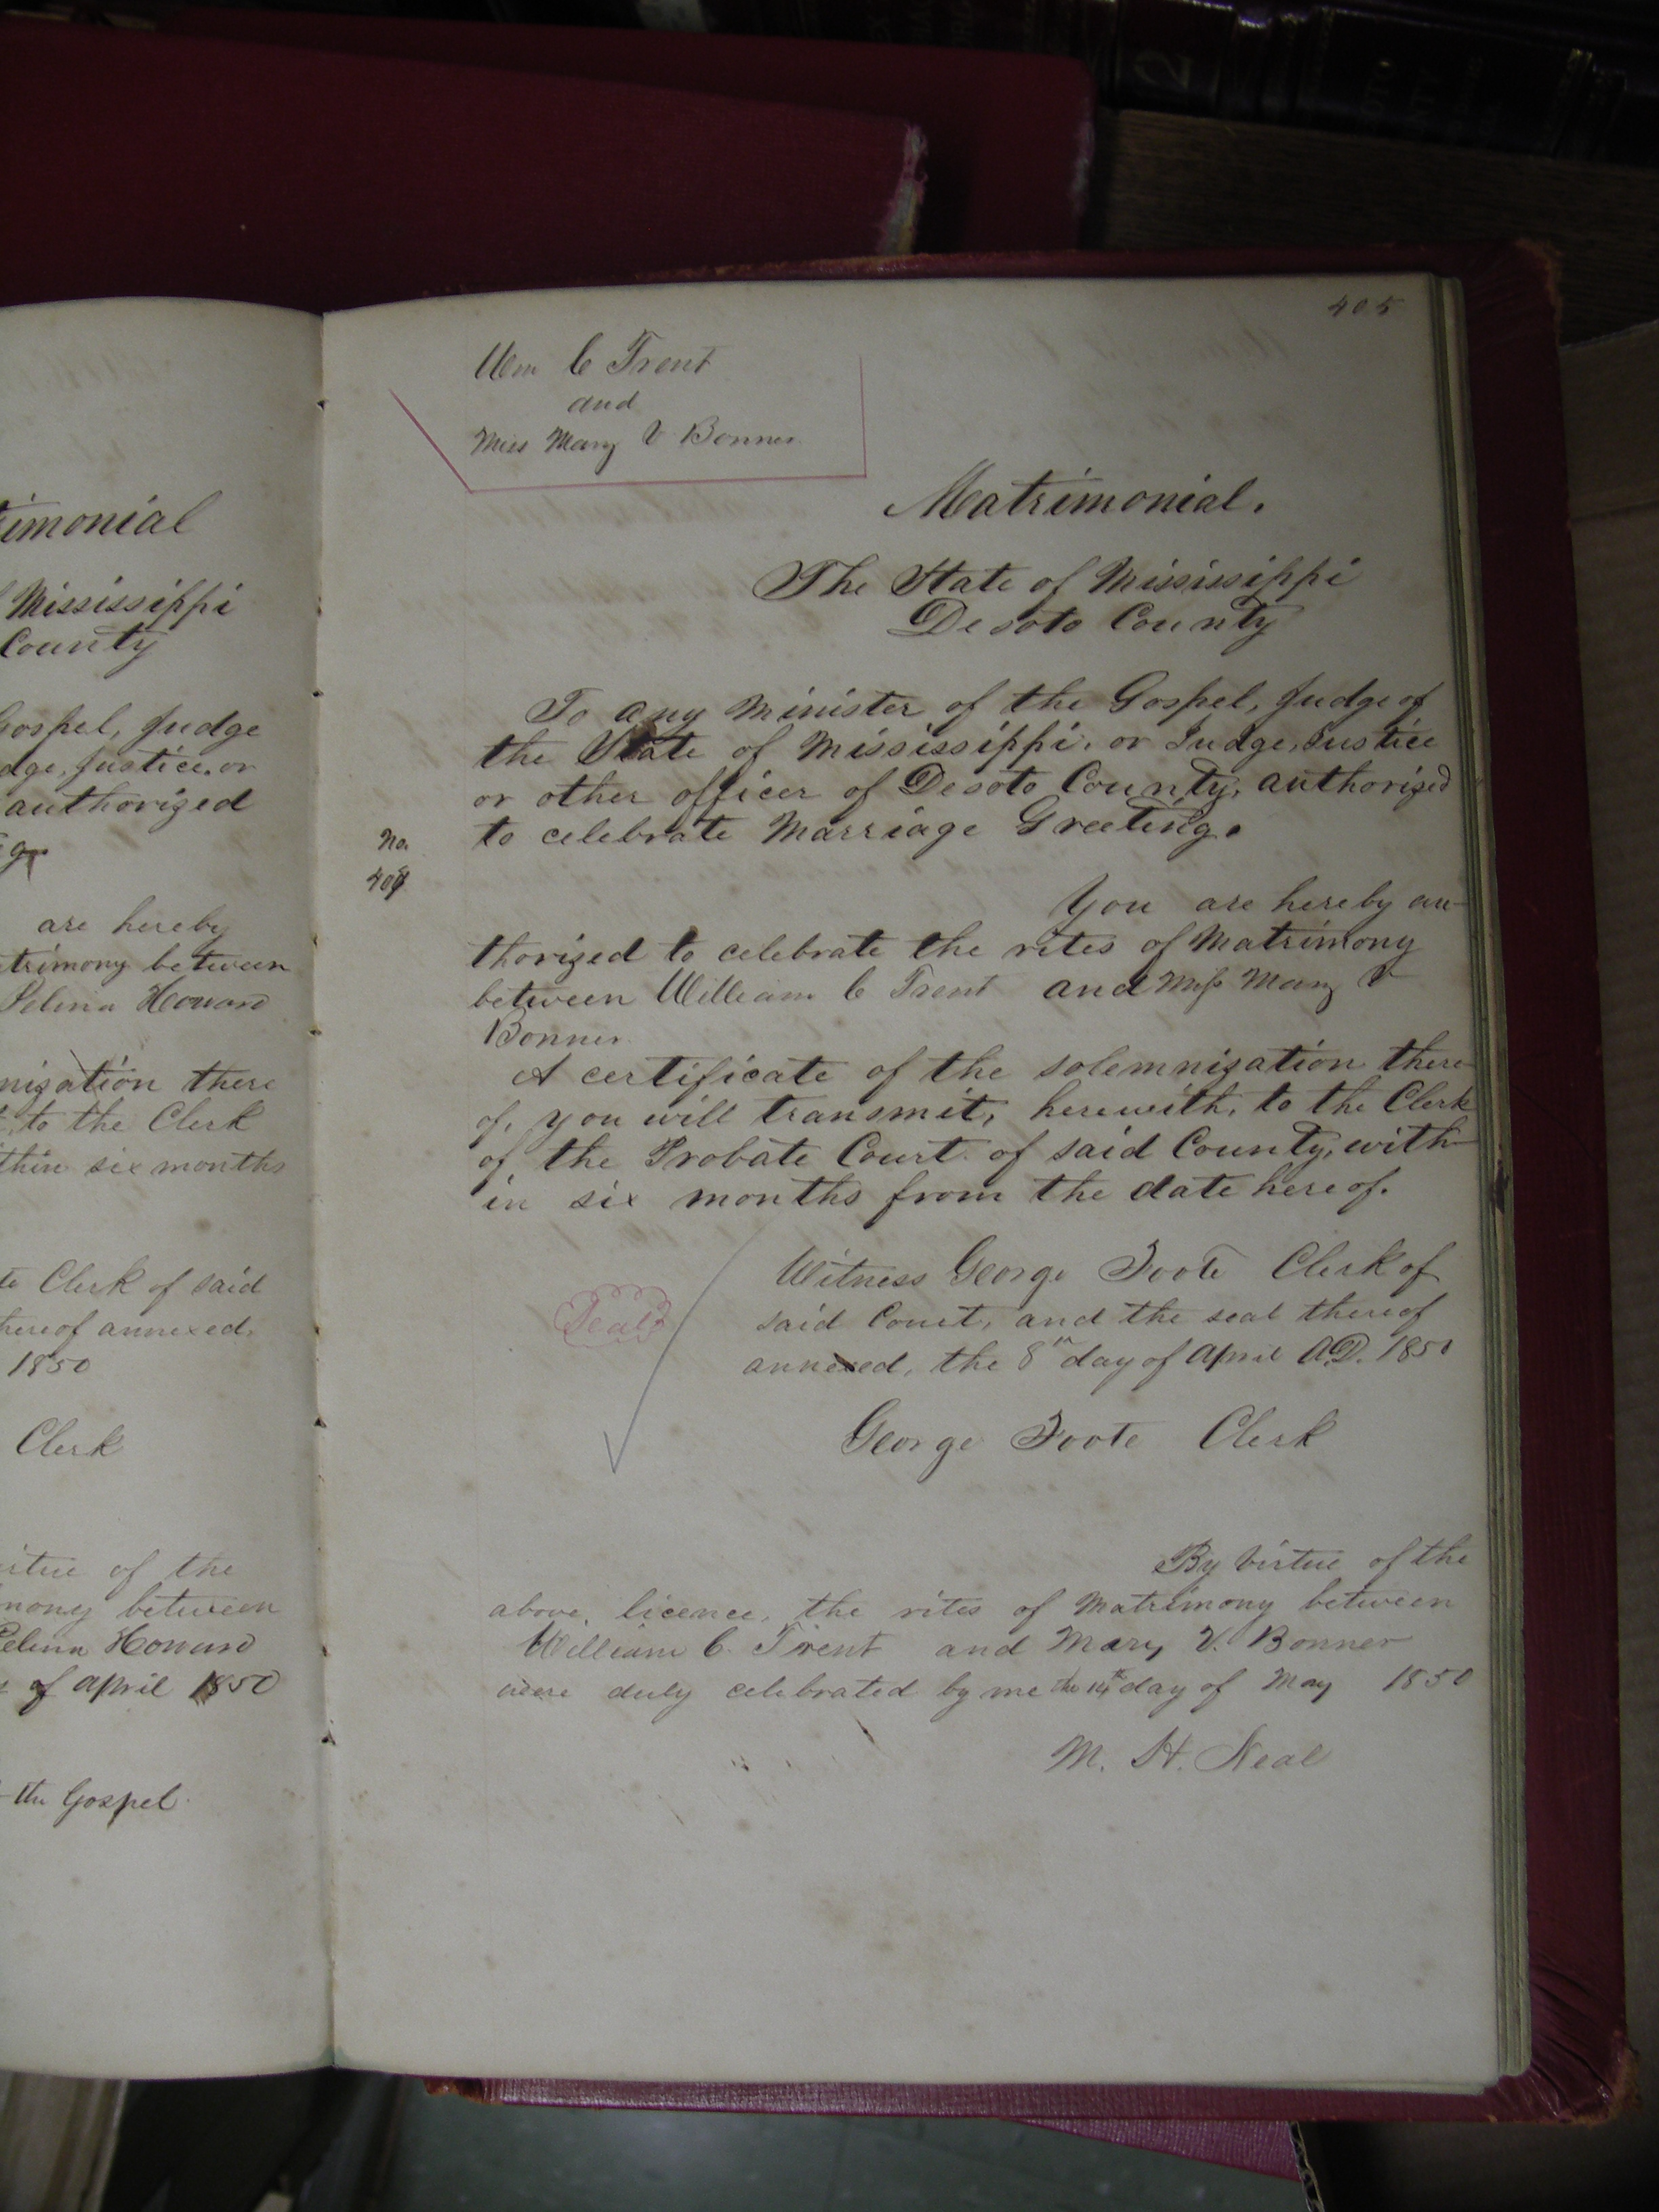 timonial
Mississippi
County
Gospel, Judge
dge, Justice, or
authorized
are hereby
trimony between
Selina Howard
nization there
to the Clerk
thin six months
te Clerk of said
hereof annexed.
1850
Clerk
irtue of the
mony between
Selina Howard
of April 1850
the Gospel.
405
Wm C Trent
and
Miss Mary V Bonner
Matrimonial.
The State of Mississippi
Desoto County
To any Minister of the Gospel, Judge of
the State of Mississippi, or Judge, Justice
or other officer of Desoto County, authorized
to celebrate Marriage Greeting.
No.
You are hereby au-
thorized to celebrate the rites of Matrimony
between William C Trent and Miss Mary V
Bonner
A certificate of the solemnization there-
of, you will transmit, herewith, to the Clerk
of the Probate Court of said County, with-
in six months from the date hereof.
Witness George Foote Clerk of
said Court, and the seal thereof
annexed, the 8th day of April A.D. 1850
Seal
George Foote Clerk
By Virtue of the
above licence, the rites of Matrimony between
William C. Trent and Mary V. Bonner
were duly celebrated by me the 14th day of May 1850
M. H. Neal
2